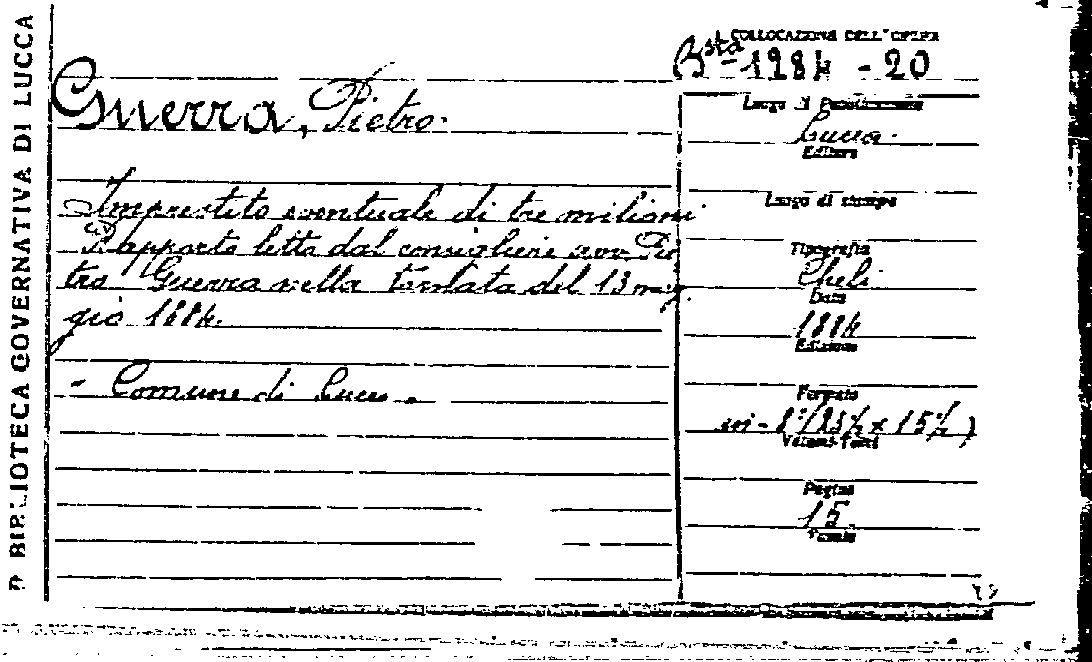 BIBLIOTECA GOVERNATIVA DI LUCCA
COLLOCAZIONE DELL'OPERA
Bsta 1284 - 20
Guerra, Pietro.
Luogo di Pubblicazione
Lucca.
Editore
Imprestito eventuale di tre milioni
Luogo di stampa
Rapporto letto dal consigliere avv Pie
Tipografia
Cheli
tro Guerra nella tornata del 13 mag
Data
gio 1884.
1884
Edizione
- Comune di Lucca.
Formato
in-8°(23½ x 15½)
Volumi-Tomi
Pagine
15
Tavole